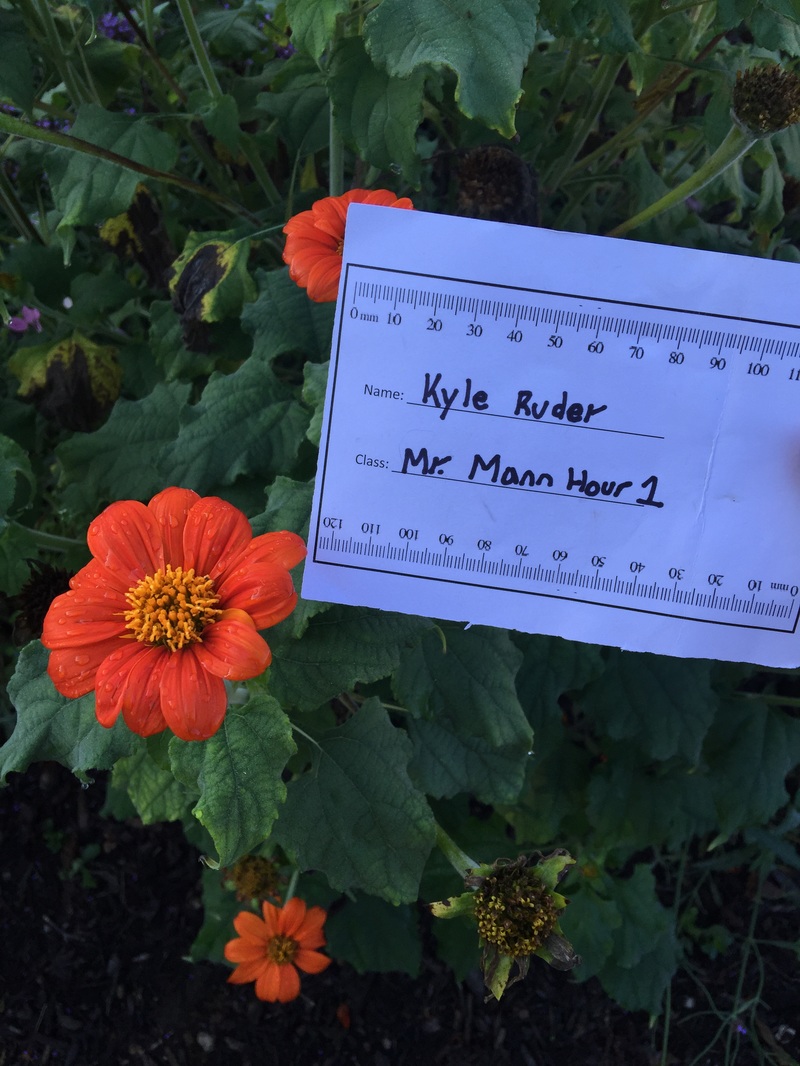 0 mm 10 20 30 40 50 60 70 80 90 100 11
Name: Kyle Ruder
Class: Mr. Mann Hour 1
120 110 100 90 80 70 60 50 40 30 20 10 0 mm